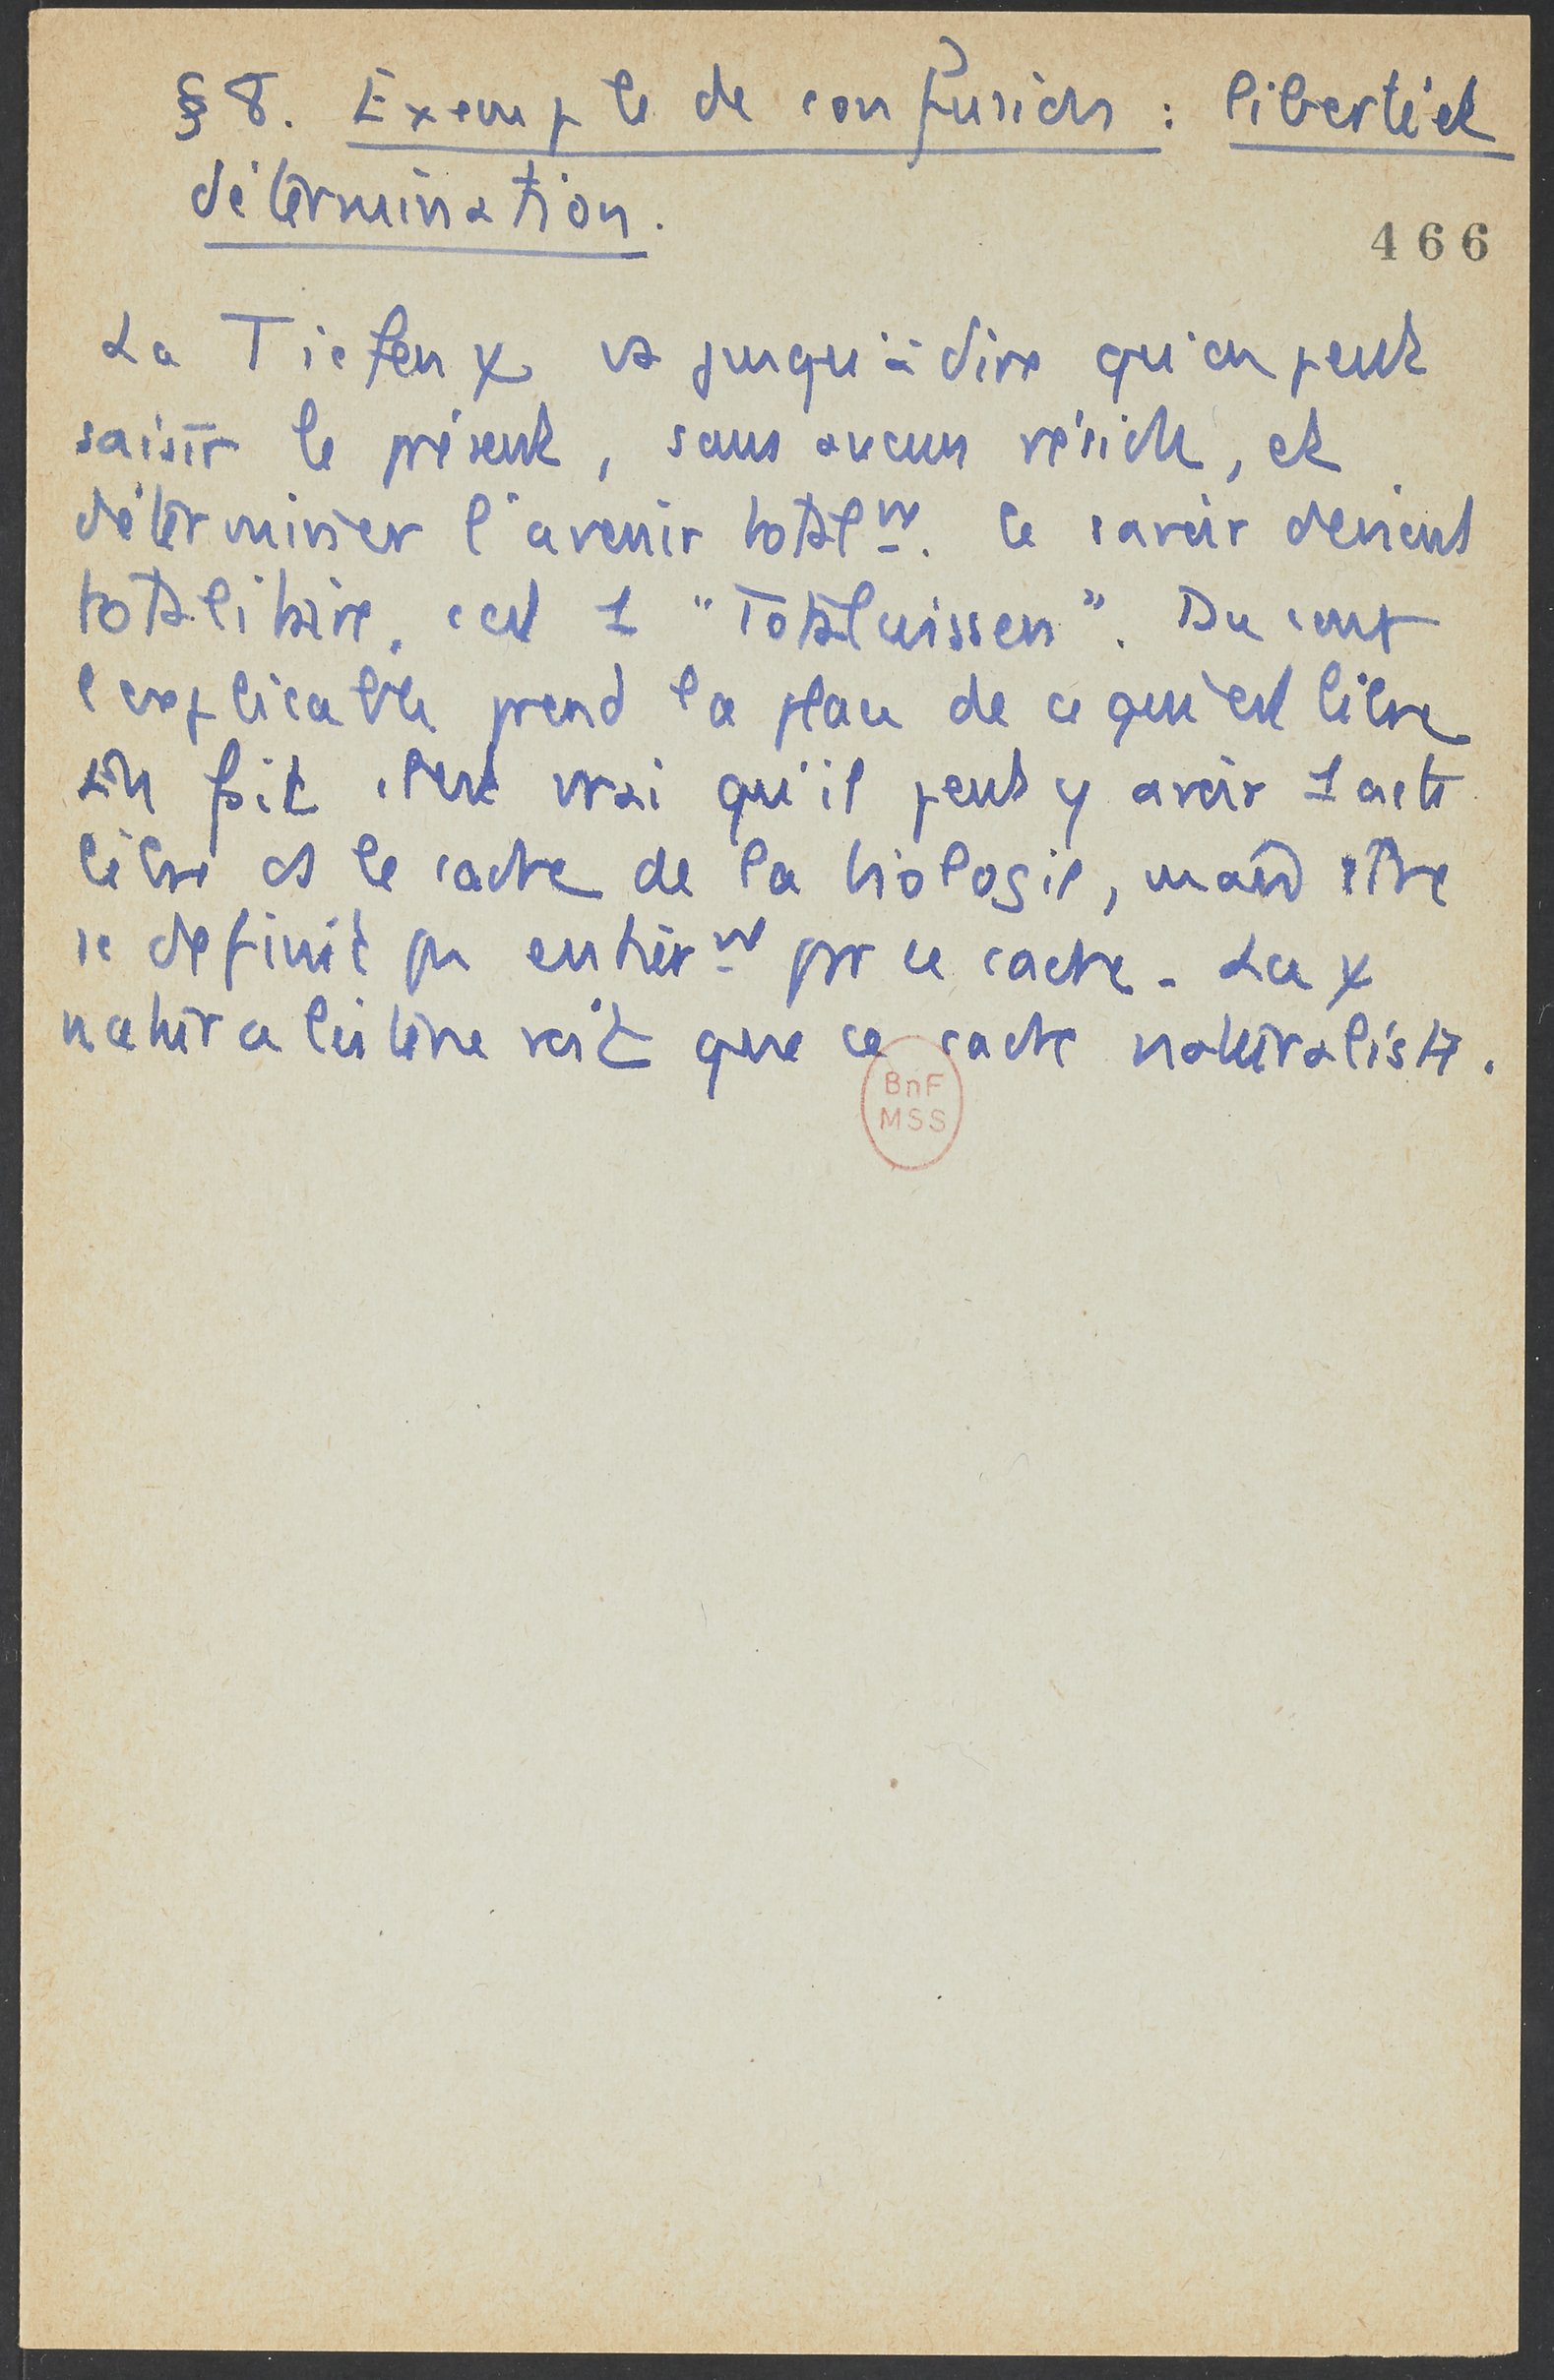 § 8. Exemple de confusion : liberté et
détermination.
466
La Tiefen χ va jusqu'à dire qu'on peut
saisir le présent, sans aucun résidu, et
déterminer l'avenir totalmt. Le savoir devient
totalitaire. c'est 1 "Totalwissen". Du coup
l'explicable prend la place de ce qui est libre
En fait il est vrai qu'il peut y avoir 1 acte
libre ds le cadre de la biologie, mais être
se définit pas entièrmt par ce cadre. La χ
naturaliste ne voit que ce cadre naturaliste.
BnF
MSS